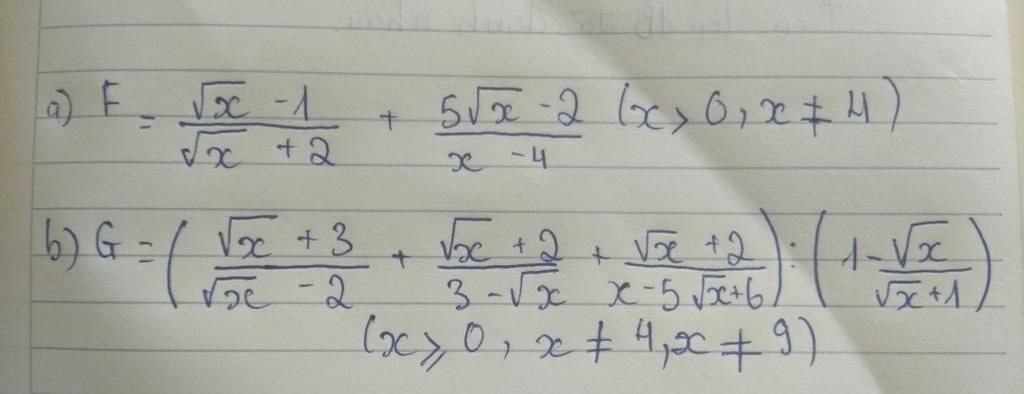 a) F = (√x - 1)/(√x + 2) + (5√x - 2)/(x - 4) (x > 0, x ≠ 4)
b) G = ((√x + 3)/(√x - 2) + (√x + 2)/(3 - √x) + (√x + 2)/(x - 5√x + 6)) : (1 - √x/(√x + 1))
(x ⩾ 0, x ≠ 4, x ≠ 9)